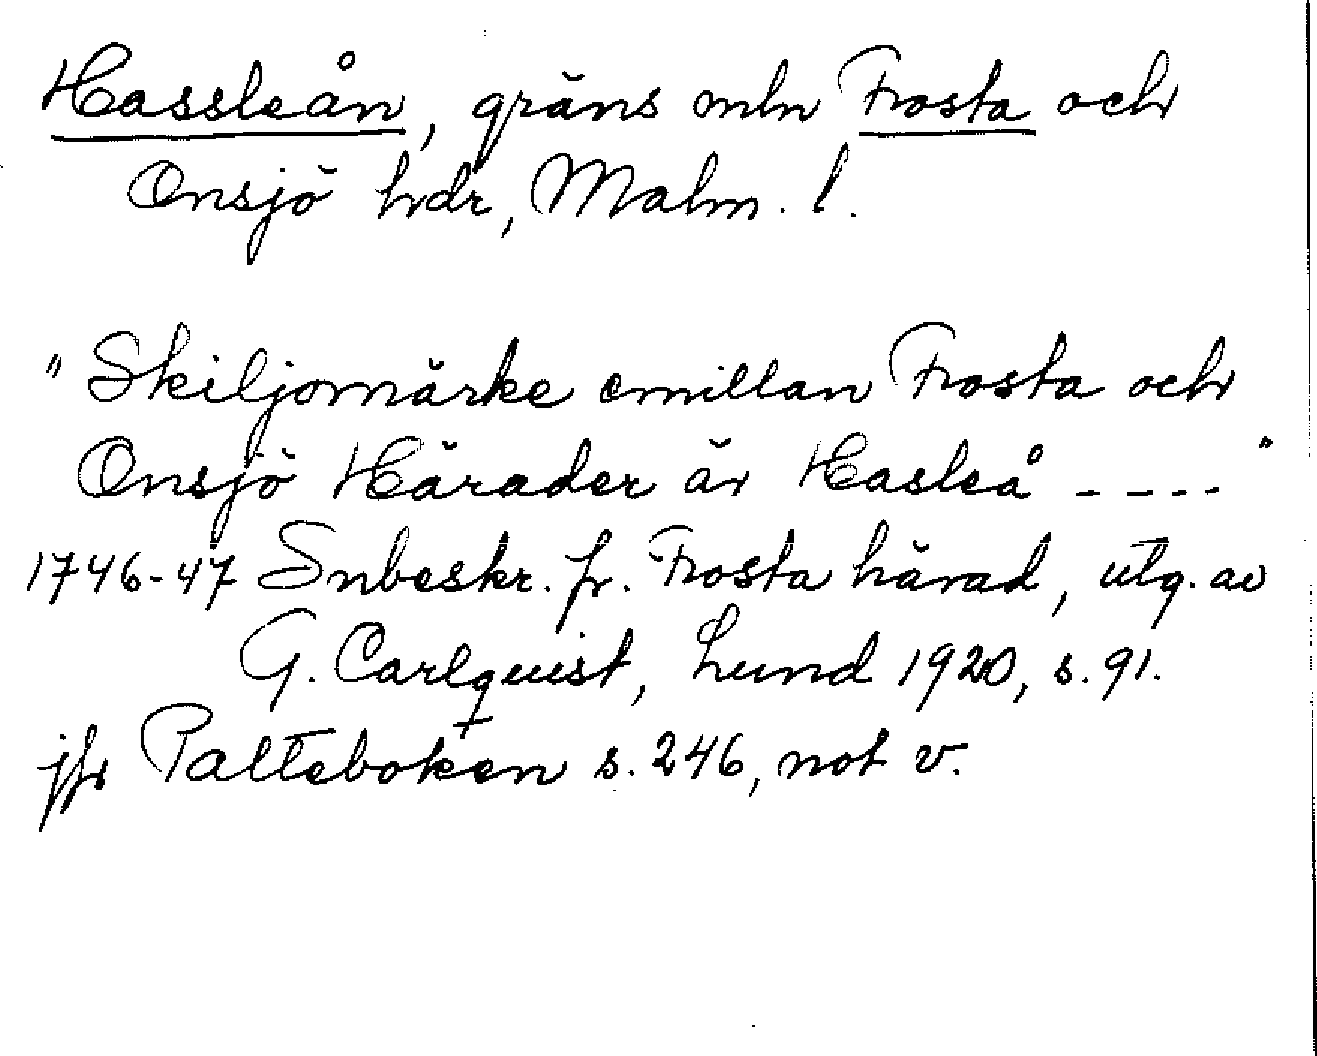 Hassleån, gräns mln Frosta och
Onsjö hdr, Malm. l.
"Skiljomärke emillan Frosta och
Onsjö Härader är Hasleå ----"
1746-47 Snbeskr. fr. Frosta härad, utg. av
G. Carlquist, Lund 1920, s. 91.
jfr Palteboken s. 246, not v.